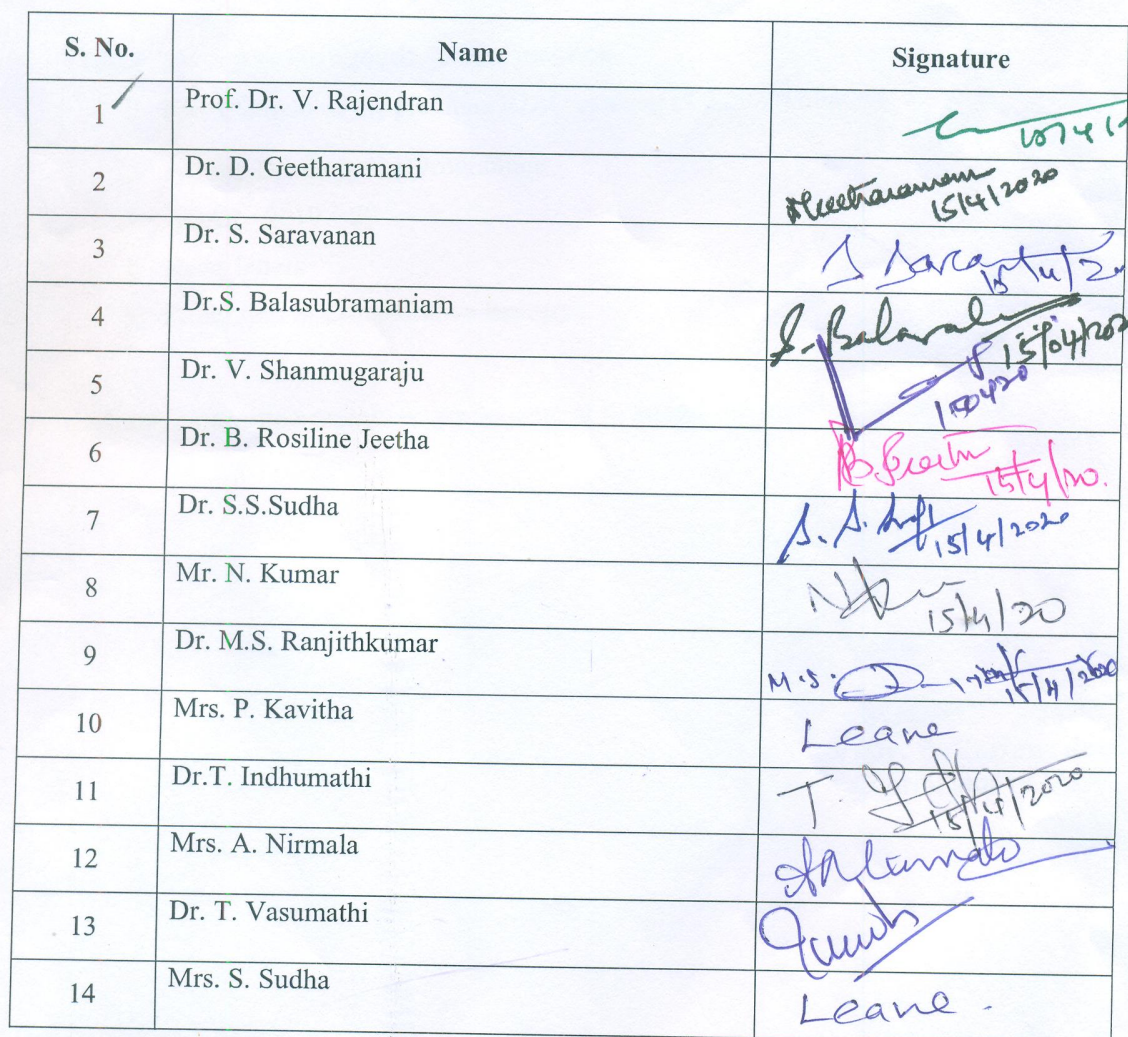 S. No. Name Signature
1 Prof. Dr. V. Rajendran
2 Dr. D. Geetharamani Geetharamani 15/4/2020
3 Dr. S. Saravanan 15/4/20
4 Dr.S. Balasubramaniam 15/04/2020
5 Dr. V. Shanmugaraju 150420
6 Dr. B. Rosiline Jeetha 15/4/20.
7 Dr. S.S.Sudha S. S. 15/4/2020
8 Mr. N. Kumar 15/4/20
9 Dr. M.S. Ranjithkumar M.S. 15/4/2020
10 Mrs. P. Kavitha Leave
11 Dr.T. Indhumathi T. 15/4/2020
12 Mrs. A. Nirmala
13 Dr. T. Vasumathi
14 Mrs. S. Sudha Leave.